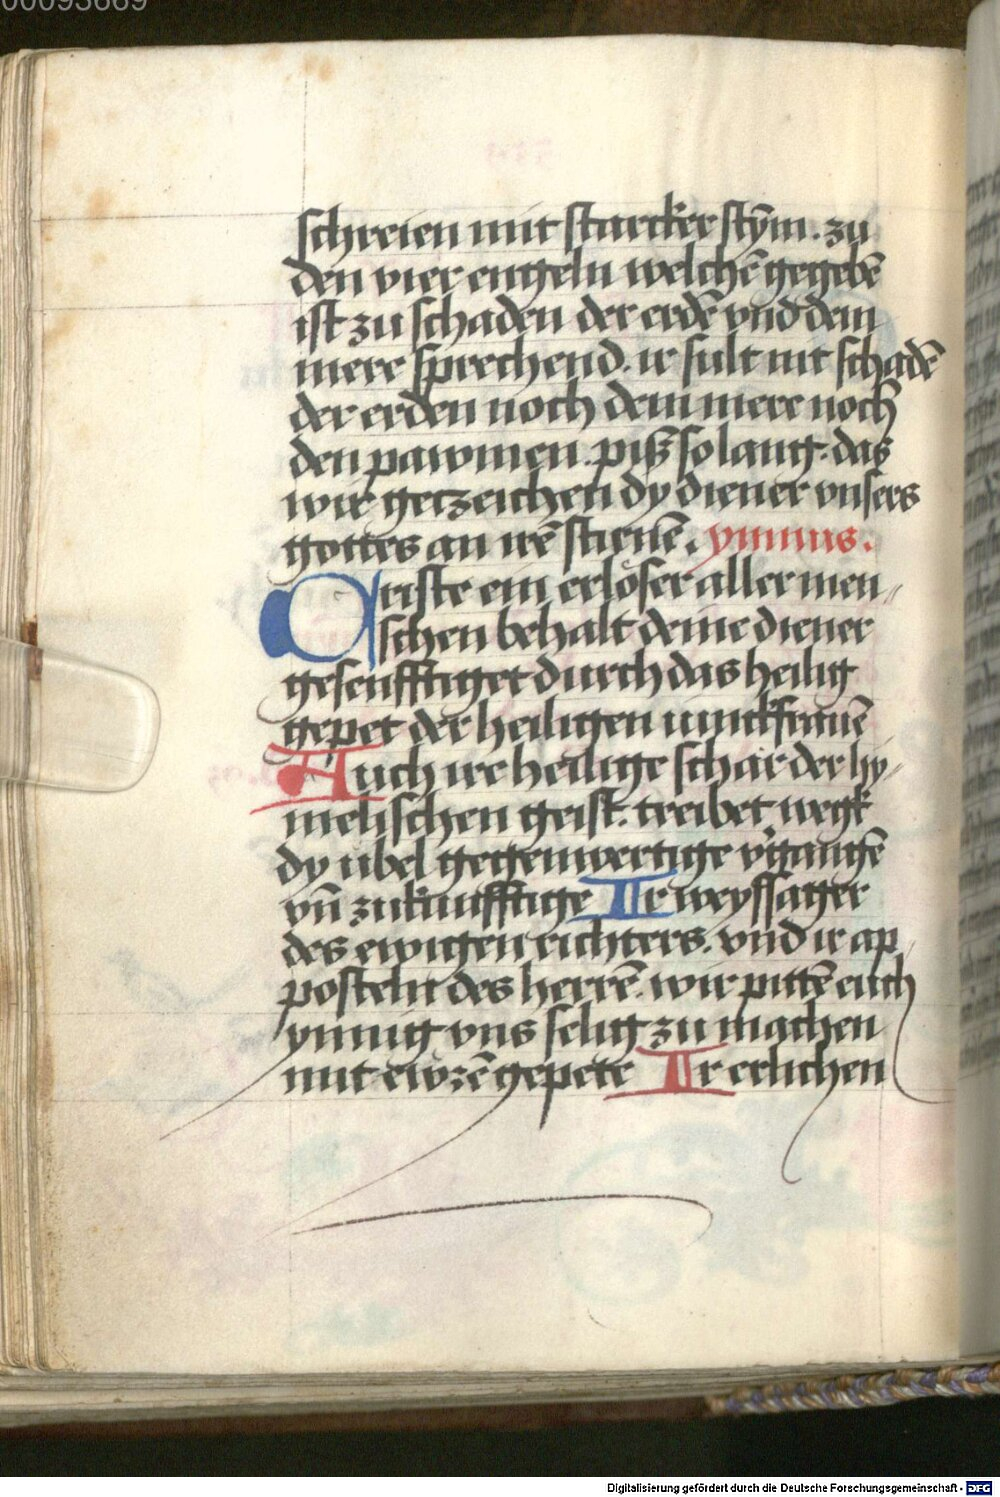 00093669
schreien mit starcker stȳm. zu
den vier engeln welchē gegebē
ist zu schaden der erdē vnd dem
mere sprechend. ir sult nit schadē
der erden noch dem mere noch
den pawmen. piß so lang. das
wir getzeichen dy diener vnsers
gottes an irē stirnē. ymnus.
Criste ein erlöser aller men„
schen behalt deine diener
gesenfftiget durch das heilig
gepet der heiligen iunckfrauē
Auch ire heilige schar der hy„
melischen geist. treibet wegk
dy übel gegenwertige v'gangē
vn̄ zukunfftige Ir weyssager
des ewigen richters. vnd ir ap„
posteln des herrē. wir pittē euch
ynnig vns selig zu machen
mit ewrē gepete Ir erlichen
Digitalisierung gefördert durch die Deutsche Forschungsgemeinschaft - DFG